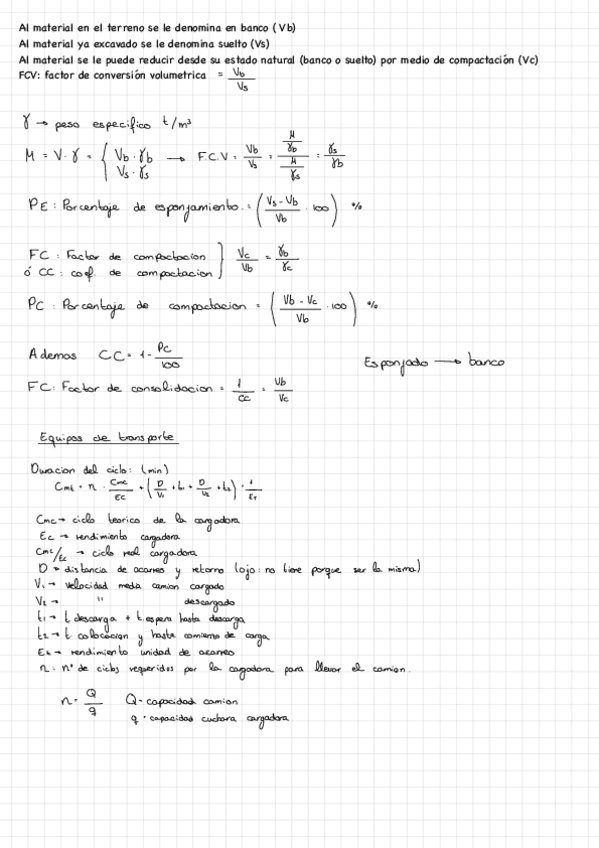 Al material en el terreno se le denomina en banco (Vb)
Al material ya excavado se le denomina suelto (Vs)
Al material se le puede reducir desde su estado natural (banco o suelto) por medio de compactación (Vc)
FCV: factor de conversión volumetrica = Vb/Vs
γ → peso especifico t/m³
M = V·γ = { Vb·γb → F.C.V = Vb/Vs = (M/γb)/(M/γs) = γs/γb
Vs·γs
PE: Porcentaje de esponjamiento = ((Vs - Vb)/Vb · 100) %
FC: Factor de compactacion } Vc/Vb = γb/γc
ó CC: coef. de compactacion
PC: Porcentaje de compactacion = ((Vb - Vc)/Vb · 100) %
Ademas CC = 1 - PC/100
Esponjado → banco
FC: Factor de consolidacion = 1/CC = Vb/Vc
Equipos de transporte
Duracion del ciclo: (min)
Cmt = n · Cmc/Ec + (D/V₁ + t₁ + D/V₂ + t₂) · 1/Et
Cmc → ciclo teorico de la cargadora
Ec → rendimiento cargadora
Cmc/Ec → ciclo real cargadora
D → distancia de acarreo y retorno (ojo: no tiene porque ser la misma)
V₁ → velocidad media camion cargado
V₂ → " descargado
t₁ → t descarga + t. espera hasta descarga
t₂ → t colocacion y hasta comienzo de carga
Et → rendimiento unidad de acarreo
n: nº de ciclos requeridos por la cargadora para llevar el camion.
n = Q/q Q = capacidad camion
q = capacidad cuchara cargadora